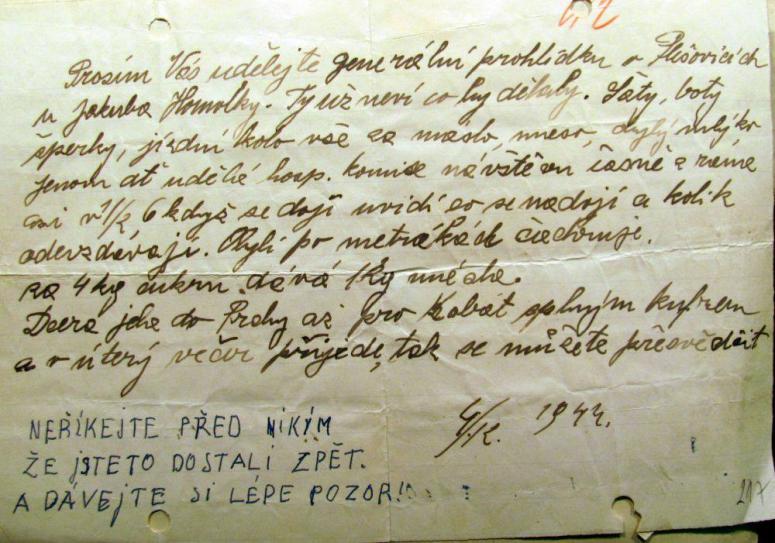 Prosím Vás udělejte generální prohlídku v Plešovicích
u Jakuba Homolky. Ty už neví co by dělaly. Šaty, boty
šperky, jízdní kolo vše za maslo, maso, mlýko
jenom ať udělá hosp. komise návštěvu časně z rána
asi v 6 když se dojí uvidí co se nadojí a kolik
odevzdávají. Obylí po metrákách čachruje.
za 4 kg cukru dává 1 kg
Dcera jede do Prahy až pro kabát s plným kufrem
a v úterý večer přijede, tak se můžete přesvědčit
1944.
NEŘÍKEJTE PŘED NIKÝM
ŽE JSTETO DOSTALI ZPĚT.
A DÁVEJTE SI LÉPE POZOR!
217